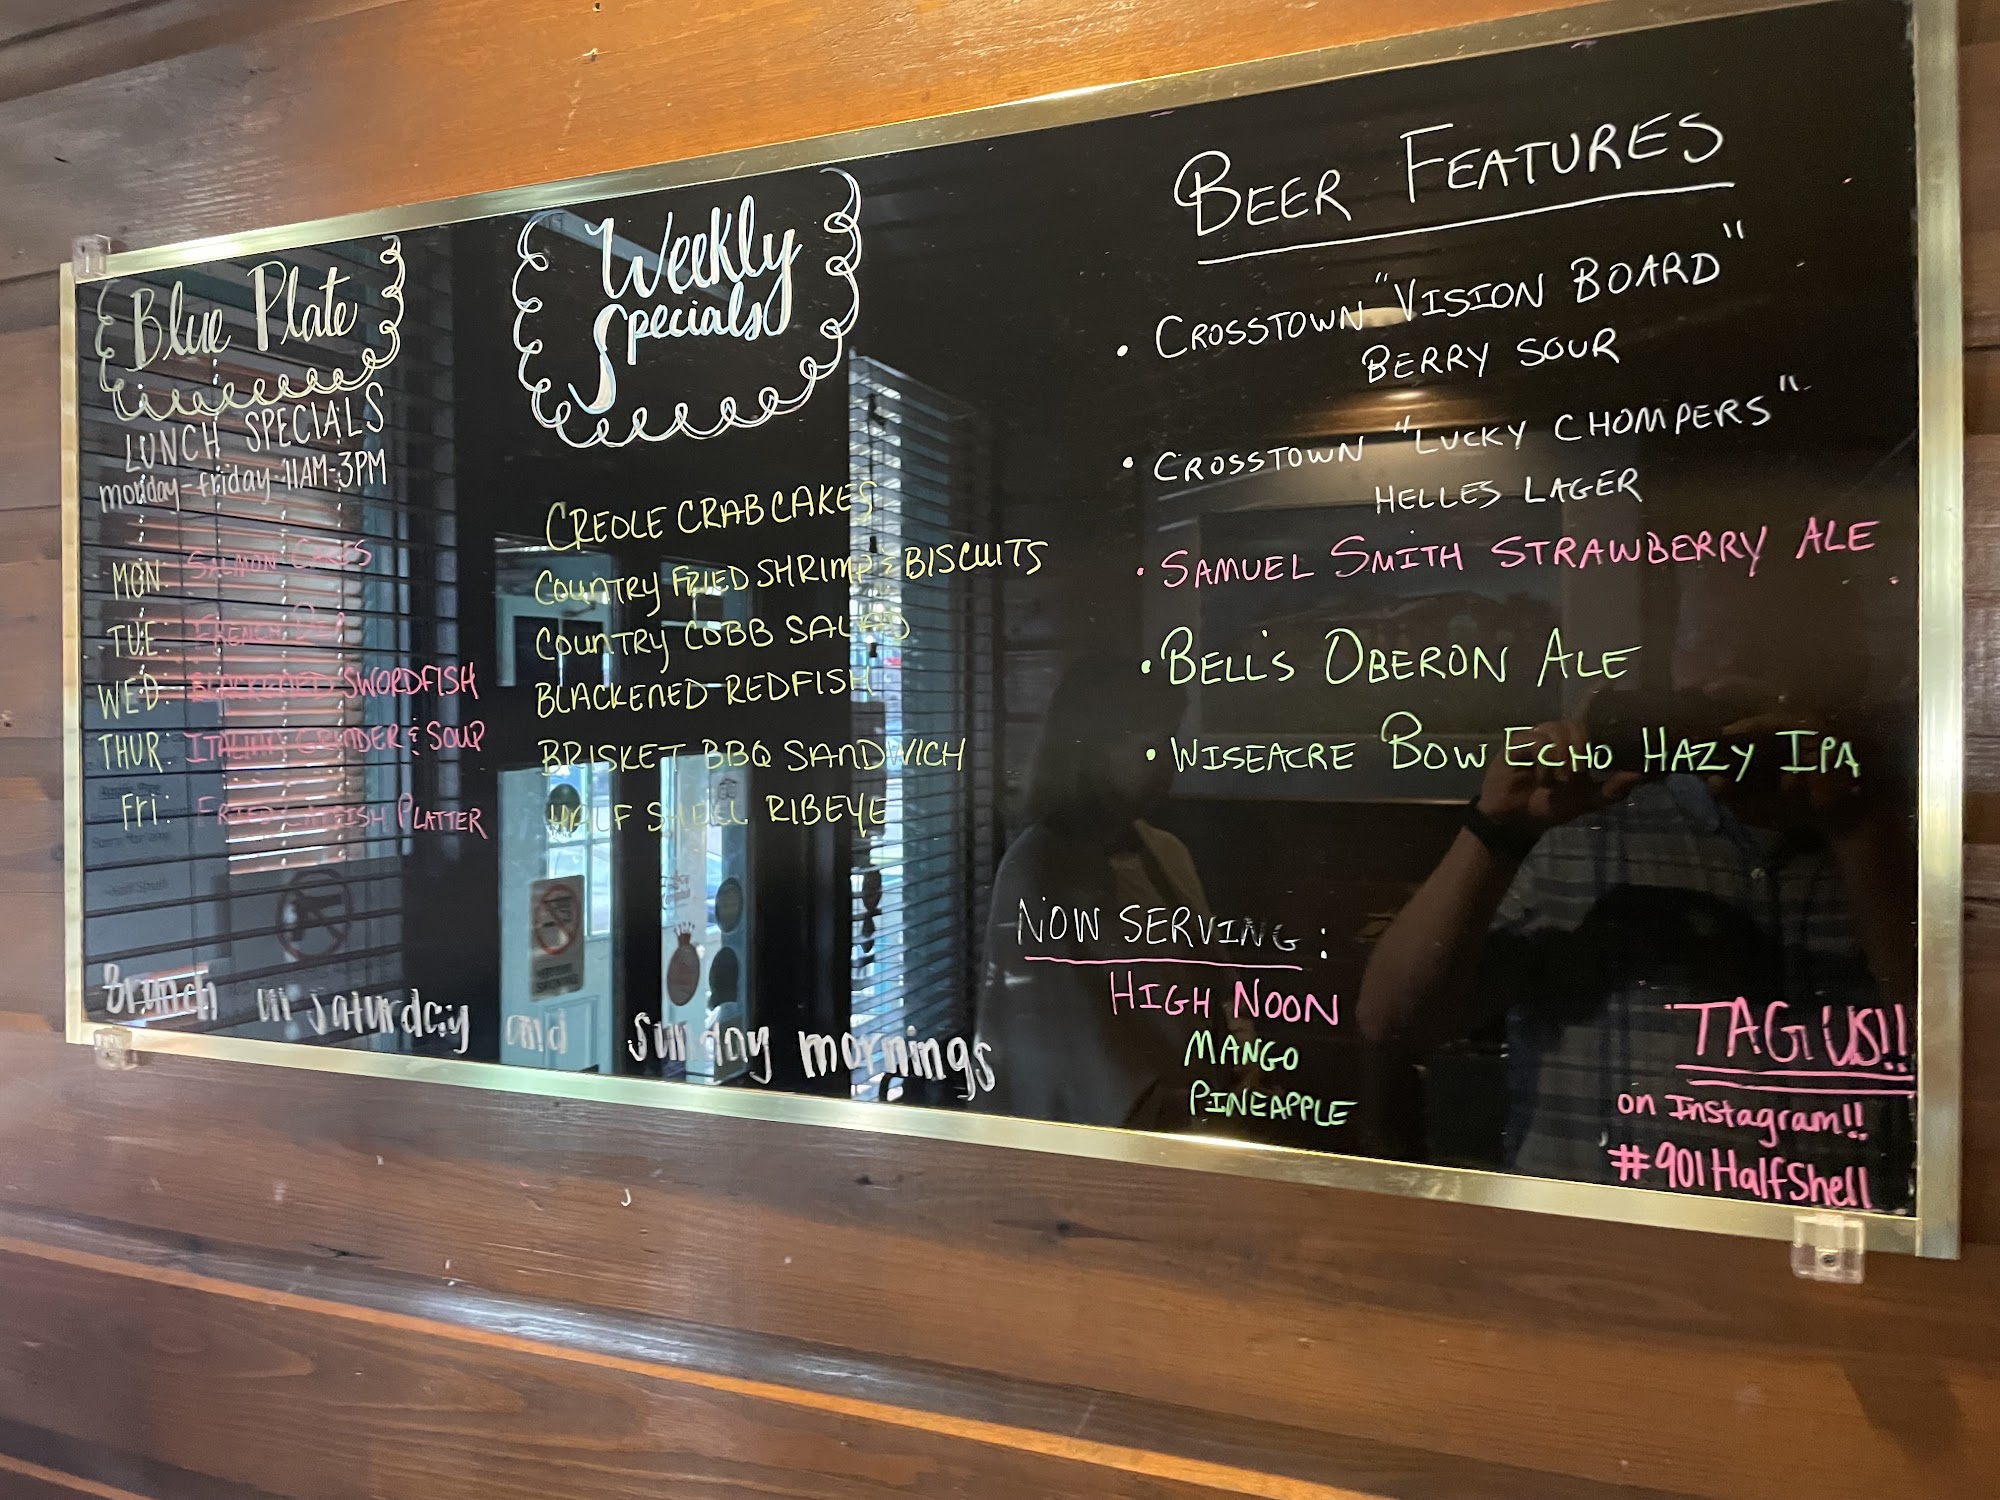 Blue Plate
LUNCH SPECIALS
monday-friday·11AM-3PM
MON: SALMON CAKES
TUE: FRENCH DIP
WED: BLACKENED SWORDFISH
THUR: ITALIAN GRINDER & SOUP
FRI: FRIED CATFISH PLATTER
Weekly
Specials
CREOLE CRAB CAKES
COUNTRY FRIED SHRIMP & BISCUITS
COUNTRY COBB SALAD
BLACKENED REDFISH
BRISKET BBQ SANDWICH
HALF SHELL RIBEYE
Brunch on Saturday and Sunday mornings
BEER FEATURES
• CROSSTOWN "VISION BOARD"
BERRY SOUR
• CROSSTOWN "LUCKY CHOMPERS"
HELLES LAGER
• SAMUEL SMITH STRAWBERRY ALE
• BELL'S OBERON ALE
• WISEACRE BOW ECHO HAZY IPA
NOW SERVING:
HIGH NOON
MANGO
PINEAPPLE
TAG US!!
on Instagram!!
#901HalfShell